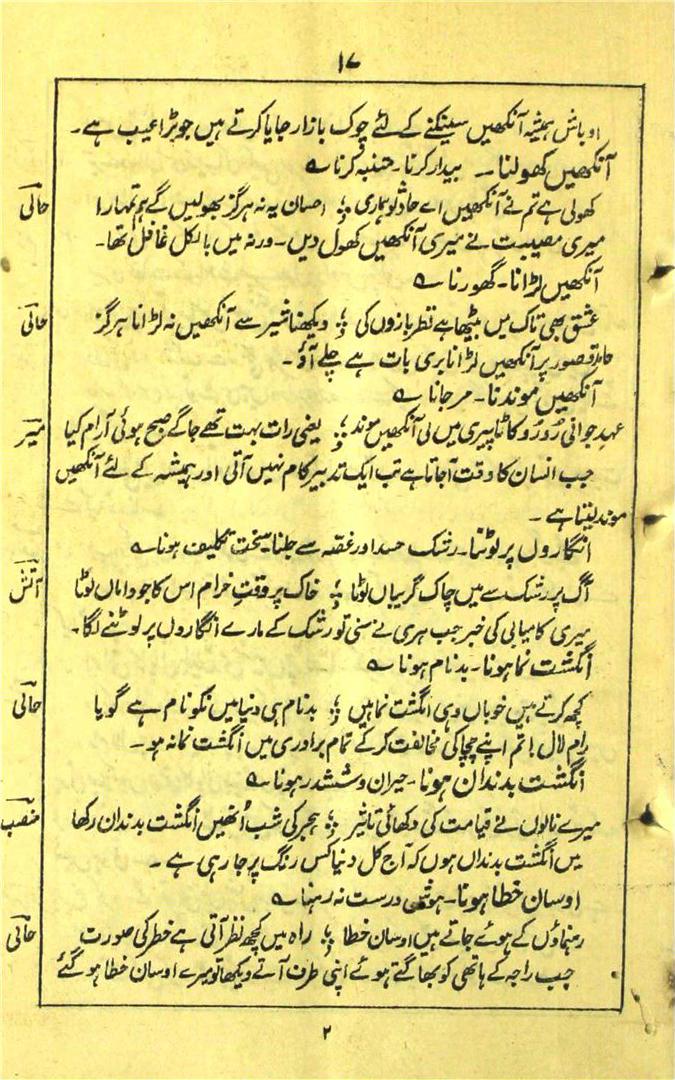 ۱۷
اوباش ہمیشہ آنکھیں سینکنے کے لئے چوک بازار جایا کرتے ہیں جو بڑا عیب ہے۔
آنکھیں کھولنا۔ بیدار کرنا۔ متنبہ کرنا ے
کھولی ہے تم نے آنکھیں اے حادثو ہماری ؛ احسان یہ نہ ہرگز بھولیں گے ہم تمہارا حالی
میری مصیبت نے میری آنکھیں کھول دیں۔ ورنہ میں بالکل غافل تھا۔
آنکھیں لڑانا۔ گھورنا ے
عشق بھی تاک میں بیٹھا ہے نظر بازوں کی ؛ دیکھنا شیر سے آنکھیں نہ لڑانا ہرگز حالی
قصور پر آنکھیں لڑانا بری بات ہے چلے آؤ۔
آنکھیں موندنا۔ مرجانا ے
عہد جوانی رو رو کاٹا پیری میں لی آنکھیں موند ؛ یعنی رات بہت تھے جاگے صبح ہوئی آرام کیا میر
جب انسان کا وقت آجاتا ہے تب ایک تدبیر کام نہیں آتی اور ہمیشہ کے لئے آنکھیں
موند لیتا ہے۔
انگاروں پر لوٹنا۔ رشک حسد اور غصہ سے جلنا۔ سخت تکلیف ہونا ے
آگ پر رشک سے میں چاک گریباں لوٹا ؛ خاک پر وقتِ خرام اس کا جو داماں لوٹا آتش
میری کامیابی کی خبر جب ہری نے سنی تو رشک کے مارے انگاروں پر لوٹنے لگا۔
انگشت نما ہونا۔ بدنام ہونا ے
کچھ کرتے ہیں خوباں وہی انگشت نما ہیں ؛ بدنام ہی دنیا میں نکونام ہے گویا حالی
رام لال! تم اپنے چچا کی مخالفت کرکے تمام برادری میں انگشت نما نہ ہو۔
انگشت بدندان ہونا۔ حیران و ششدر ہونا ے
میرے نالوں نے قیامت کی دکھائی تاثیر ؛ ہجر کی شب اُنھیں انگشت بدندان رکھا
میں انگشت بدنداں ہوں کہ آج کل دنیا کس رنگ پر جا رہی ہے۔
اوسان خطا ہونا۔ ہوش درست نہ رہنا ے
رہنماؤں کے ہوئے جاتے ہیں اوسان خطا ؛ راہ میں کچھ نظر آتی ہے خطر کی صورت حالی
جب راجہ کے ہاتھی کو بھاگتے ہوئے اپنی طرف آتے دیکھا تو میرے اوسان خطا ہو گئے
۲